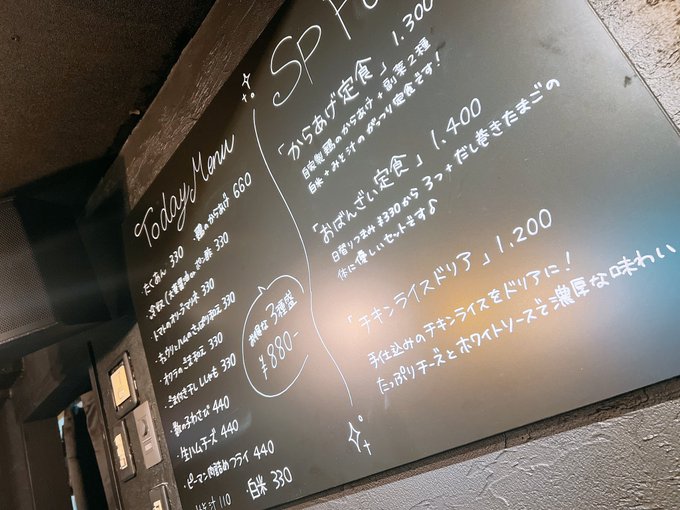 Today Menu
・鶏のからあげ 660
たくあん 330
トマトのオリーブマリネ 330
・キュウリとハムのさっぱり和え 330
・オクラのごま和え 330
・味付き干ししゃも 330
・数の子わさび 440
・生ハムチーズ 440
・ピーマン肉詰めフライ 440
汁 110
・白米 330
お得な3種盛
¥880-
SP
「からあげ定食」1.300
自家製鶏のからあげ+副菜2種
白米+みそ汁のがっつり定食です!
「おばんざい定食」1.400
日替りつまみ¥330から3つ+だし巻きたまごの
体に優しいセットです♪
「チキンライスドリア」1.200
手仕込みのチキンライスをドリアに!
たっぷりチーズとホワイトソースで濃厚な味わい